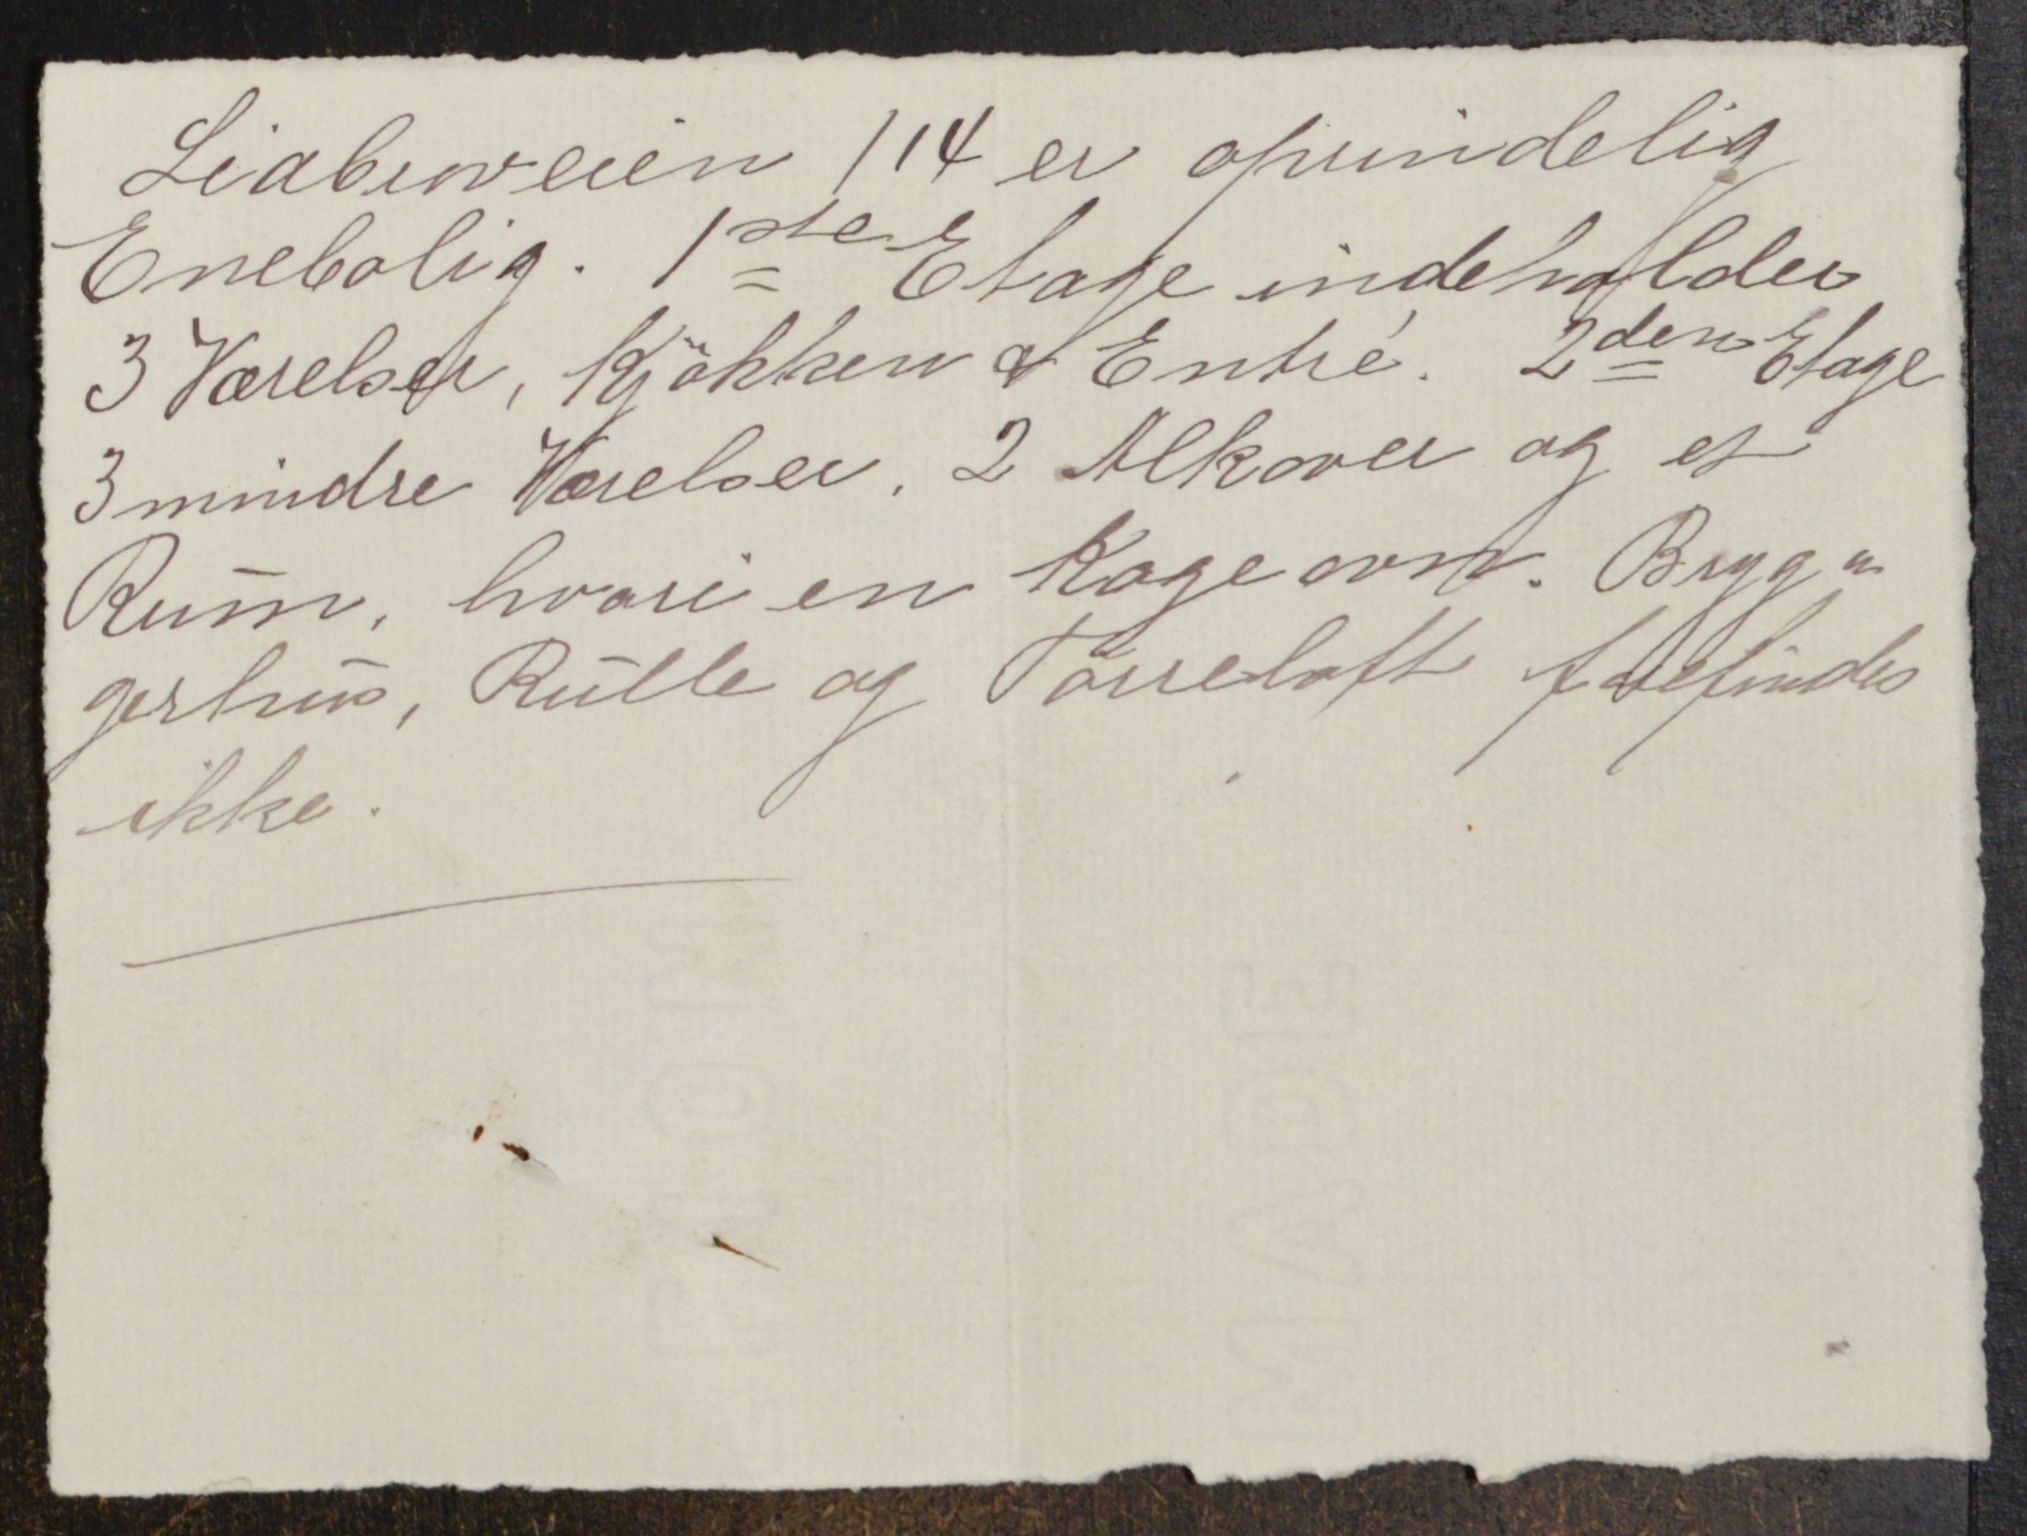 Liabroveien 114 er oprindelig
Enebolig. 1ste Etage indeholder
3 Værelser, Kjökken & Entré. 2den Etage
3 mindre Værelser, 2 Alkover og et
Rum, hvori en Kogeovn. Bryg-
gerhus, Rulle og Törreloft forefindes
ikke.